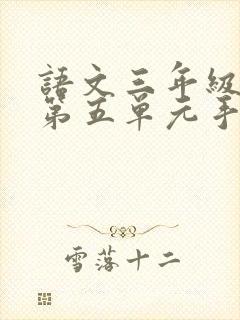 語文三年級
第五單元手
雪落十二